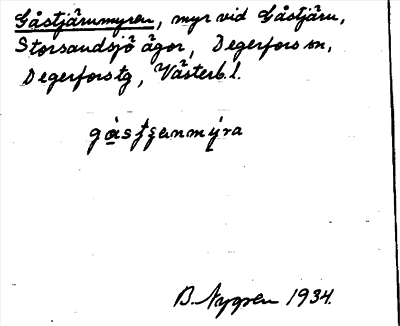 Gåstjärnmyren, myr vid Gåstjärn,
Storsandsjö ägor, Degerfors sn,
Degerfors tg, Västerb. l.
B. Nygren 1934.